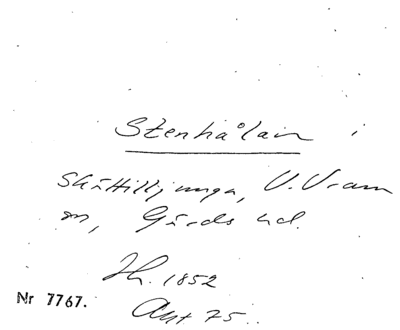 Stenhålan i
Skättilljunga, V. Vram
sn, Gärds hd.
1852
Nr 7767.
75.